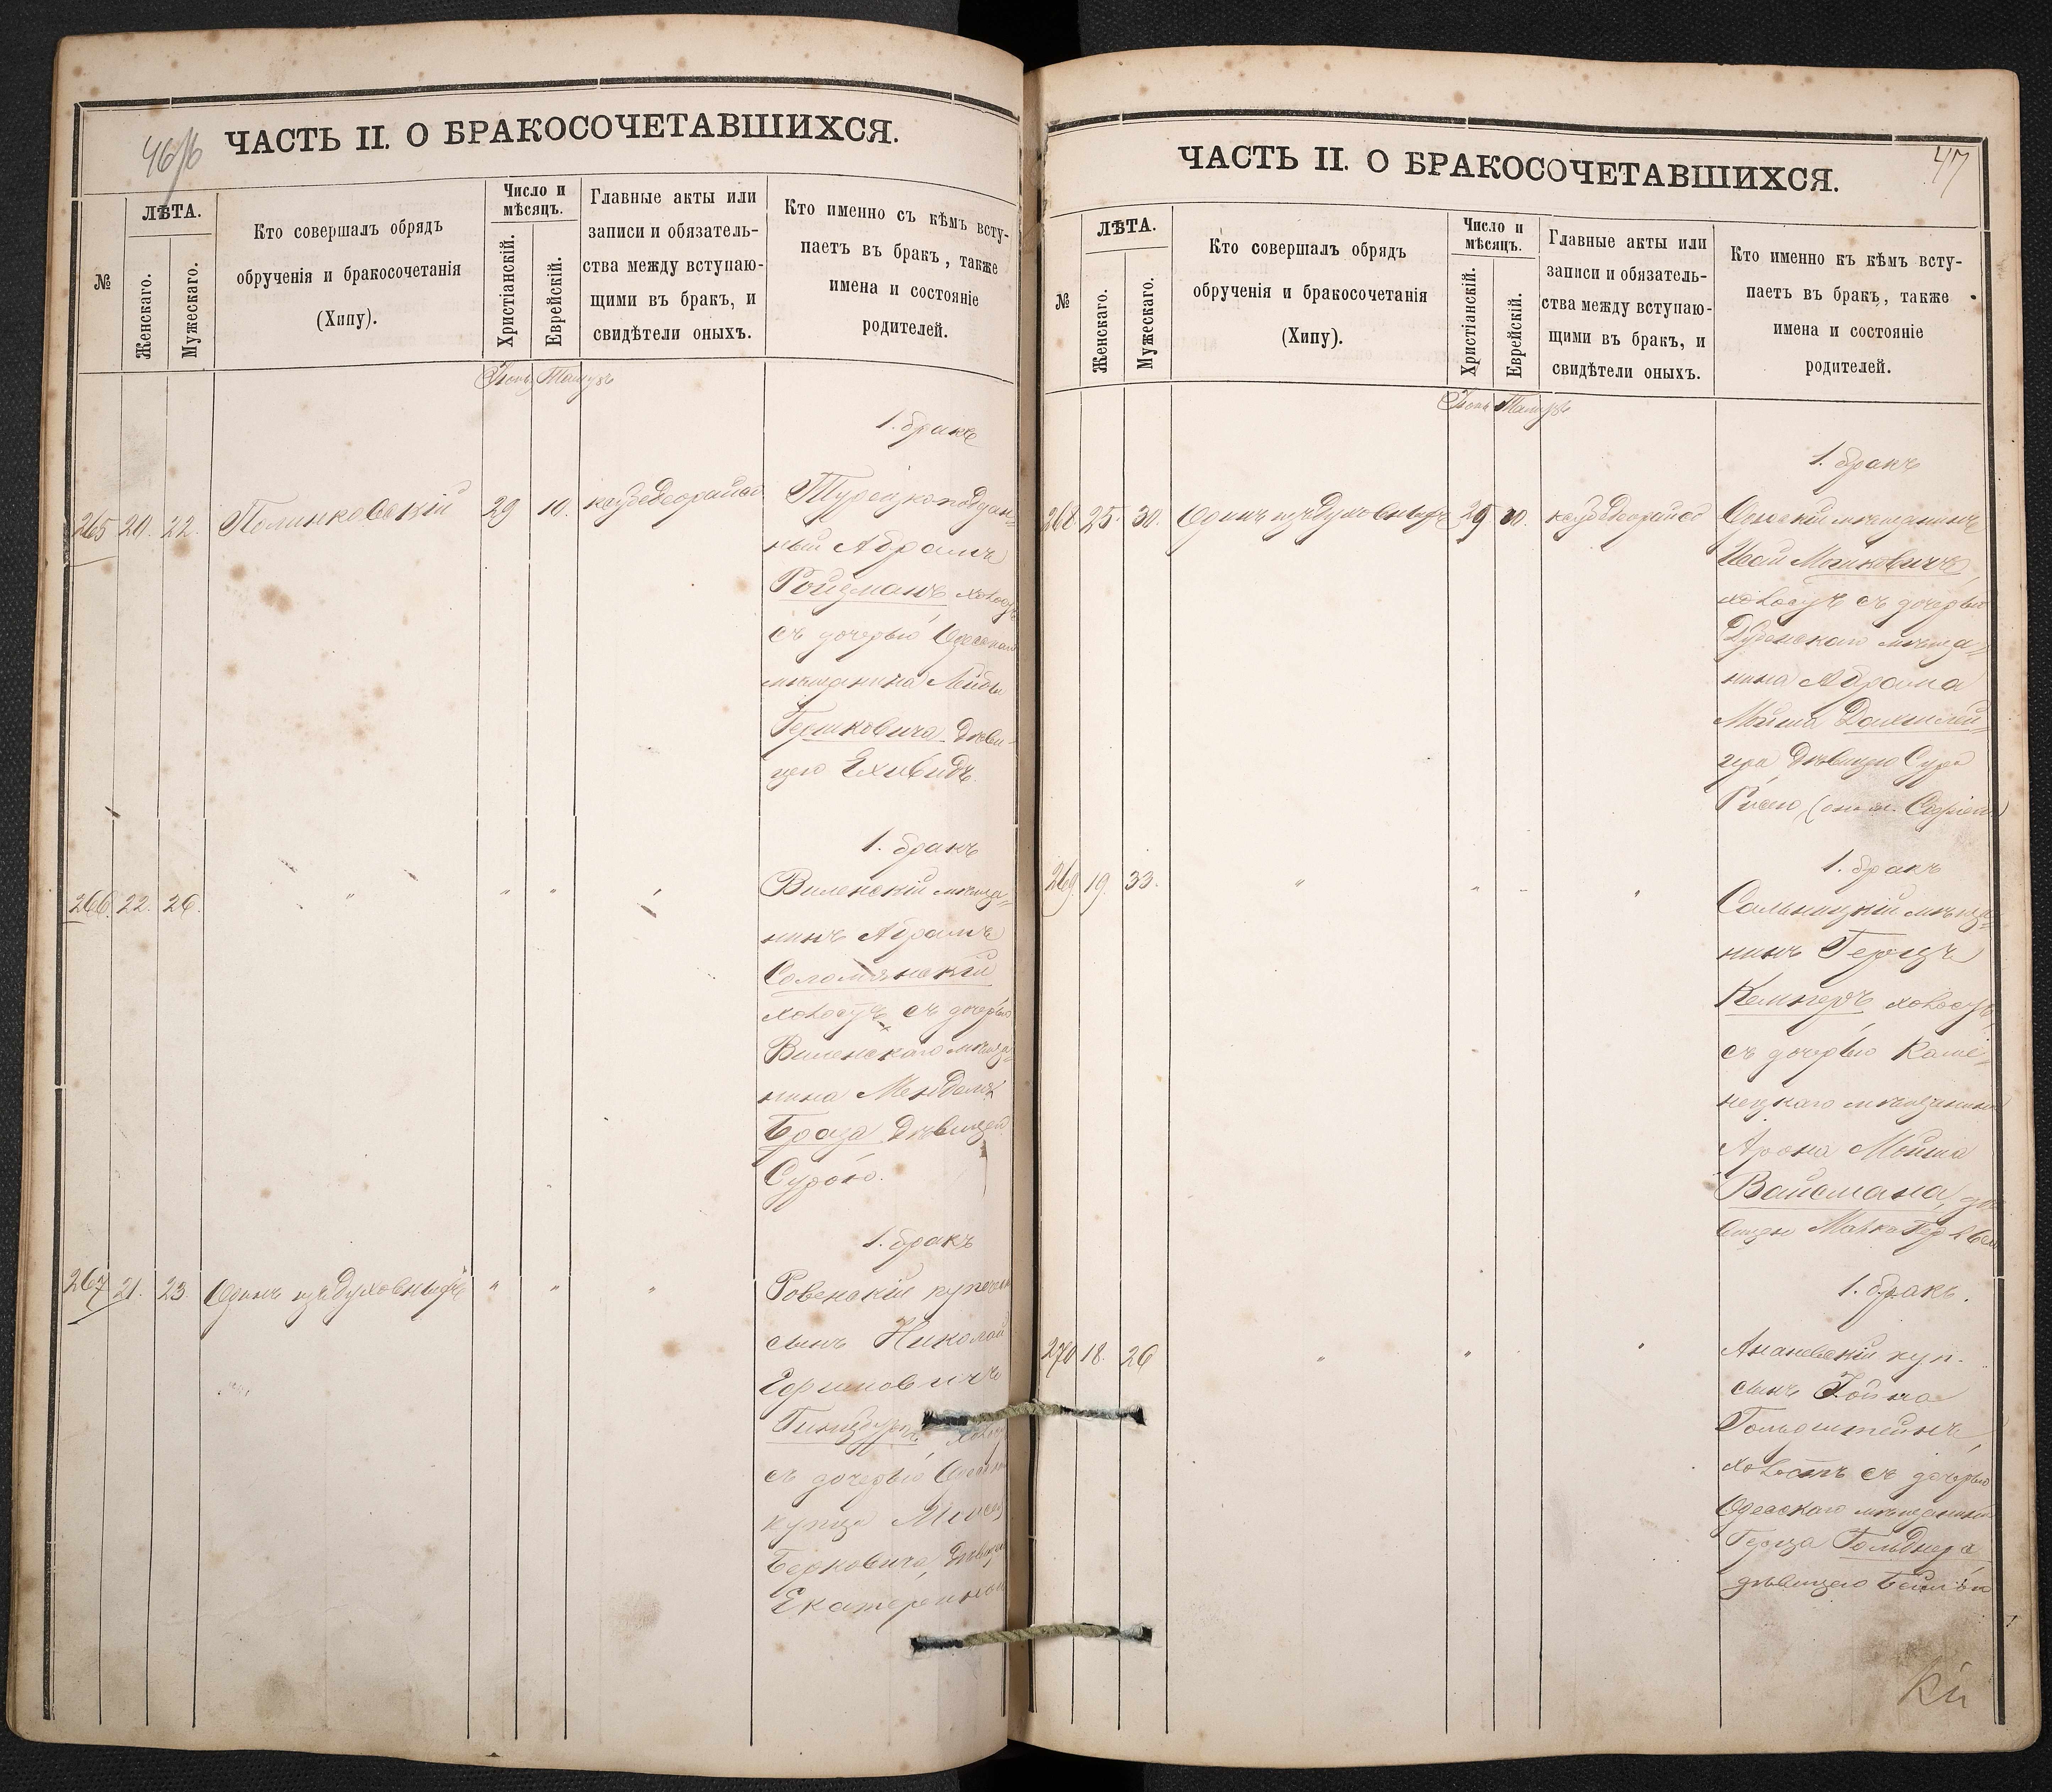 46/б
ЧАСТЬ II. О БРАКОСОЧЕТАВШИХСЯ.
№
ЛѢТА.
Женскаго.
Мужескаго.
Кто совершалъ обрядъ
обрученія и бракосочетанія
(Хипу).
Число и
мѣсяцъ.
Христіанскій.
Еврейскій.
Главные акты или
записи и обязатель-
ства между вступаю-
щими въ бракъ, и
свидѣтели оныхъ.
Кто именно съ кѣмъ всту-
паетъ въ бракъ, также
имена и состояніе
родителей.
Іюнь Тамузъ
1. бракъ
265 20. 22. Полинковскій 29 10. Турецкоподдан-
ный Абрамъ
Ройзманъ холостъ
съ дочерью Одесскаго
мѣщанина Лейбы
Гершковича дѣви-
цею Ехивидъ.
1. бракъ
266. 22. 26. " " " Виленскій мѣща-
нинъ Абрамъ
Соломянскій
холостъ съ дочерью
Виленскаго мѣща-
нина Менделя
Броза дѣвицею
Сурою.
1. бракъ
267 21. 23. Одинъ изъ духовныхъ " " " Ровенскій купеч.
сынъ Николай
Ефимовичъ
Гинцбургъ, холостъ
съ дочерью Одесскаго
купца Моисея
Берковича, дѣвицею
Екатериной
47
ЧАСТЬ II. О БРАКОСОЧЕТАВШИХСЯ.
№
ЛѢТА.
Женскаго.
Мужескаго.
Кто совершалъ обрядъ
обрученія и бракосочетанія
(Хипу).
Число и
мѣсяцъ.
Христіанскій.
Еврейскій.
Главные акты или
записи и обязатель-
ства между вступаю-
щими въ бракъ, и
свидѣтели оныхъ.
Кто именно къ кѣмъ всту-
паетъ въ бракъ, также
имена и состояніе
родителей.
Іюнь Тамузъ
1. бракъ
268 25. 30. Одинъ изъ духовныхъ 29 10. мѣщанинъ
Мошковичъ,
холостъ съ дочерью
Дубенскаго мѣща-
нина Абрама
Мойша
гера дѣвицею Сура
1. бракъ
269. 19. 33. " " - " Сальницкій мѣща-
нинъ Герцъ
Кемперъ холостъ,
съ дочерью Каме-
нецкаго мѣщанина
Арона Мойша
Вайсмана, дѣ-
вицею
1. бракъ.
270 18. 26 " " " Ананьевскій куп.
сынъ Іойна
Гольдштейнъ,
холостъ съ дочерью
Одесскаго мѣщанина
Герца Гольднера
дѣвицею